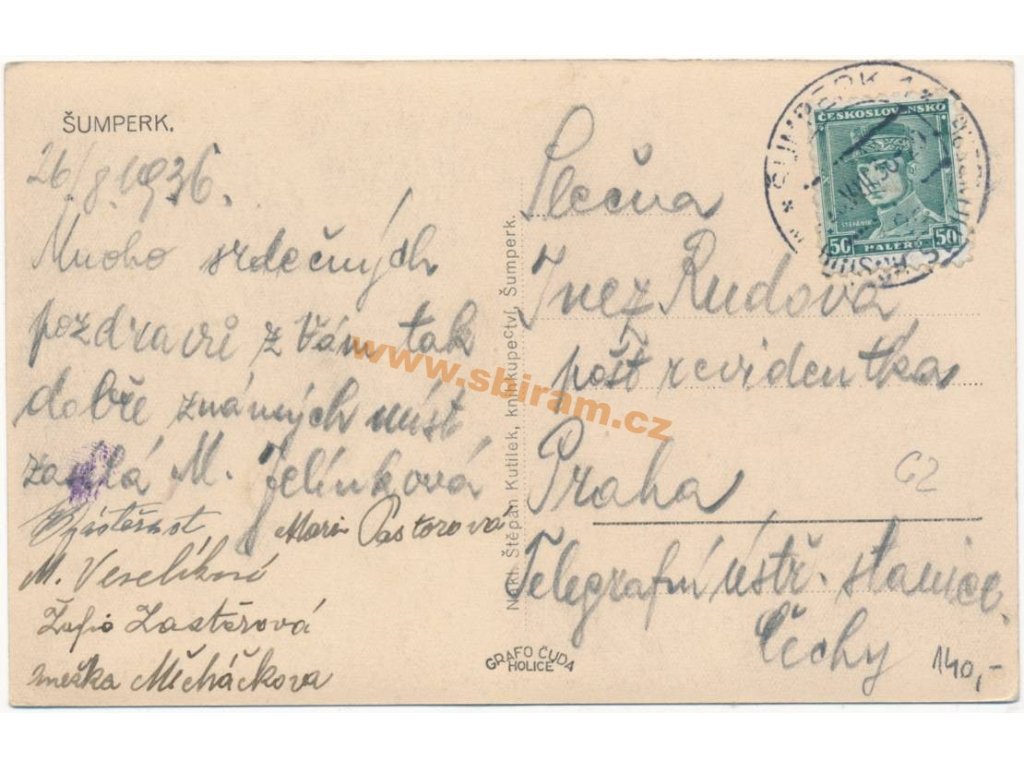 ŠUMPERK.
26/8.1936.
Mnoho srdečných
pozdravů z Vám tak
dobře známých míst
zasílá M. Jelínková
Marie Pastorová
M. Veselíková
Žofie Zastěrová
Měcháčkova
Nakl. Štěpán Kutilek, knihkupectví, Šumperk.
GRAFO ČUDA
HOLICE
ŠUMPERK 1
ČESKOSLOVENSKO
ŠTEFÁNIK
50 HALÉŘŮ 50
Slečna
Inez Rudová
pošt revidentka
Praha
Telegrafní ústř. stanice.
Čechy
62
140,-
www.sbiram.cz